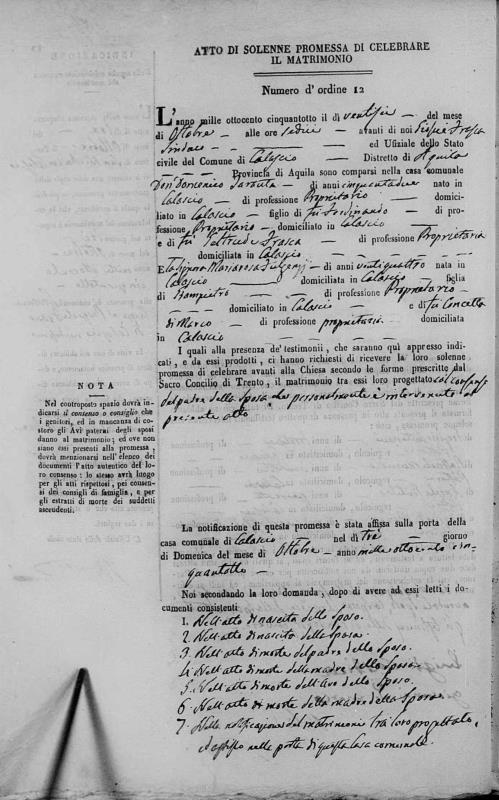 ATTO DI SOLENNE PROMESSA DI CELEBRARE
IL MATRIMONIO
Numero d' ordine 12
L'anno mille ottocento cinquantotto il dì ventisei — del mese
di Ottobre — alle ore sedici — avanti di noi Frasca
Sindaco — ed Uffiziale dello Stato
civile del Comune di Calascio — Distretto di Aquila
— Provincia di Aquila sono comparsi nella casa comunale
Don Domenico — di anni cinquantadue nato in
Calascio — di professione Proprietario — domici-
liato in Calascio — figlio di fu Ferdinando — di pro-
fessione Proprietario — domiciliato in Calascio —
e di fu Geltrude Frasca — di professione Proprietaria
domiciliata in Calascio —
E la Signora Mariarosa — di anni ventiquattro nata in
Calascio — domiciliata in Calascio — figlia
di Giampietro — di professione Proprietario —
— domiciliato in Calascio — e di fu Concetta
di Marco — di professione proprietaria — domiciliata
in Calascio —
I quali alla presenza de' testimonii, che saranno quì appresso indi-
cati, e da essi prodotti, ci hanno richiesti di ricevere la loro solenne
promessa di celebrare avanti alla Chiesa secondo le forme prescritte dal
Sacro Concilio di Trento, il matrimonio tra essi loro progettato col consenso
del padre della Sposa che personalmente è intervenuto al
presente atto
NOTA
Nel controposto spazio dovrà in-
dicarsi il consenso o consiglio che
i genitori, ed in mancanza di co-
storo gli Avi paterni degli sposi
danno al matrimonio; ed ove non
siano essi presenti alla promessa,
dovrà menzionarsi nell'elenco dei
documenti l'atto autentico del lo-
ro consenso: lo stesso avrà luogo
per gli atti rispettosi, pei consen-
si dei consigli di famiglia, e per
gli estratti di morte dei suddetti
ascendenti.
La notificazione di questa promessa è stata affissa sulla porta della
casa comunale di Calascio — nel dì Tre — giorno
di Domenica del mese di Ottobre — anno mille ottocento cin-
quantotto —
Noi secondando la loro domanda, dopo di avere ad essi letti i do-
cumenti consistenti
1. Nell'atto di nascita dello Sposo.
2. Nell'atto di nascita della Sposa.
3. Nell'atto di morte del padre dello Sposo.
4. Nell'atto di morte della madre dello Sposo.
5. Nell'atto di morte dell'Avo dello Sposo.
6. Nell'atto di morte della madre della Sposa.
7. Nella notificazione del matrimonio tra loro progettato,
ed affisso nella porta di questa Casa comunale.